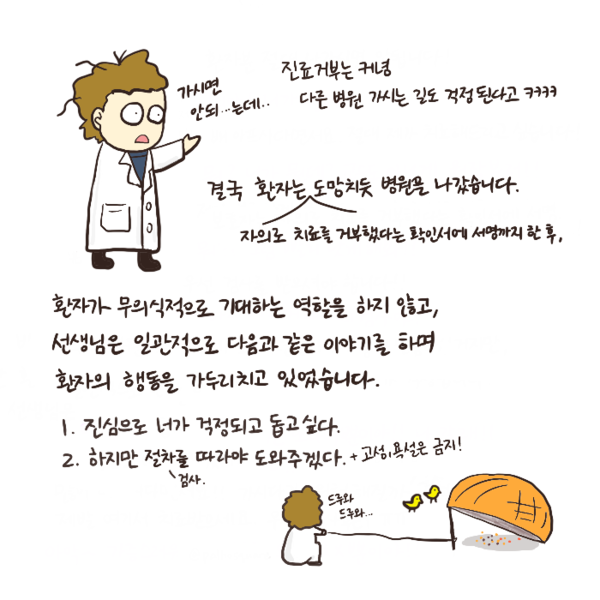 가시면
안되...는데..
진료거부는 커녕
다른 병원 가시는 길도 걱정된다고 ㅋㅋㅋㅋ
결국 환자는 도망치듯 병원을 나갔습니다.
자의로 치료를 거부했다는 확인서에 서명까지 한 후,
환자가 무의식적으로 기대하는 역할을 하지 않고,
선생님은 일관적으로 다음과 같은 이야기를 하며
환자의 행동을 가두리치고 있었습니다.
1. 진심으로 너가 걱정되고 돕고싶다.
2. 하지만 절차를 따라야 도와주겠다. + 고성, 욕설은 금지!
검사.
드루와
드루와...